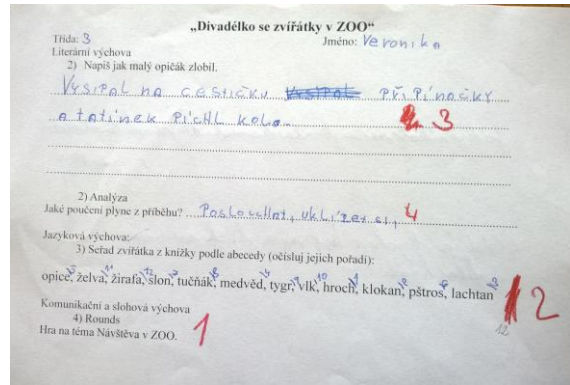 „Divadélko se zvířátky v ZOO“
Třída: 3 Jméno: Veronika
Literární výchova
2) Napiš jak malý opičák zlobil.
VYSIPAL NA CESTIČKU PŘIPÍNAČKY
a tatínek PÍCHL KOLO. 3
2) Analýza
Jaké poučení plyne z příběhu? Poslouchat, uklízet si, 4
Jazyková výchova:
3) Seřaď zvířátka z knížky podle abecedy (očísluj jejich pořadí):
opice, želva, žirafa, slon, tučňák, medvěd, tygr, vlk, hroch, klokan, pštros, lachtan 2
12
Komunikační a slohová výchova
4) Rounds
Hra na téma Návštěva v ZOO. 1